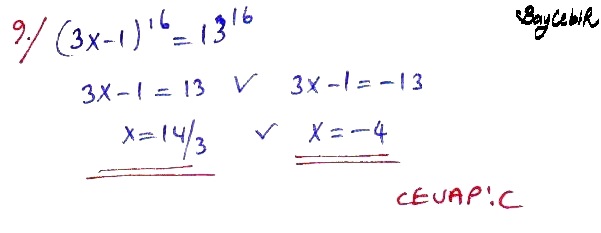 BayCebiR
9./ (3x-1)¹⁶ = 13¹⁶
3x-1 = 13 ∨ 3x-1 = -13
x = 14/3 ∨ x = -4
CEVAP: C